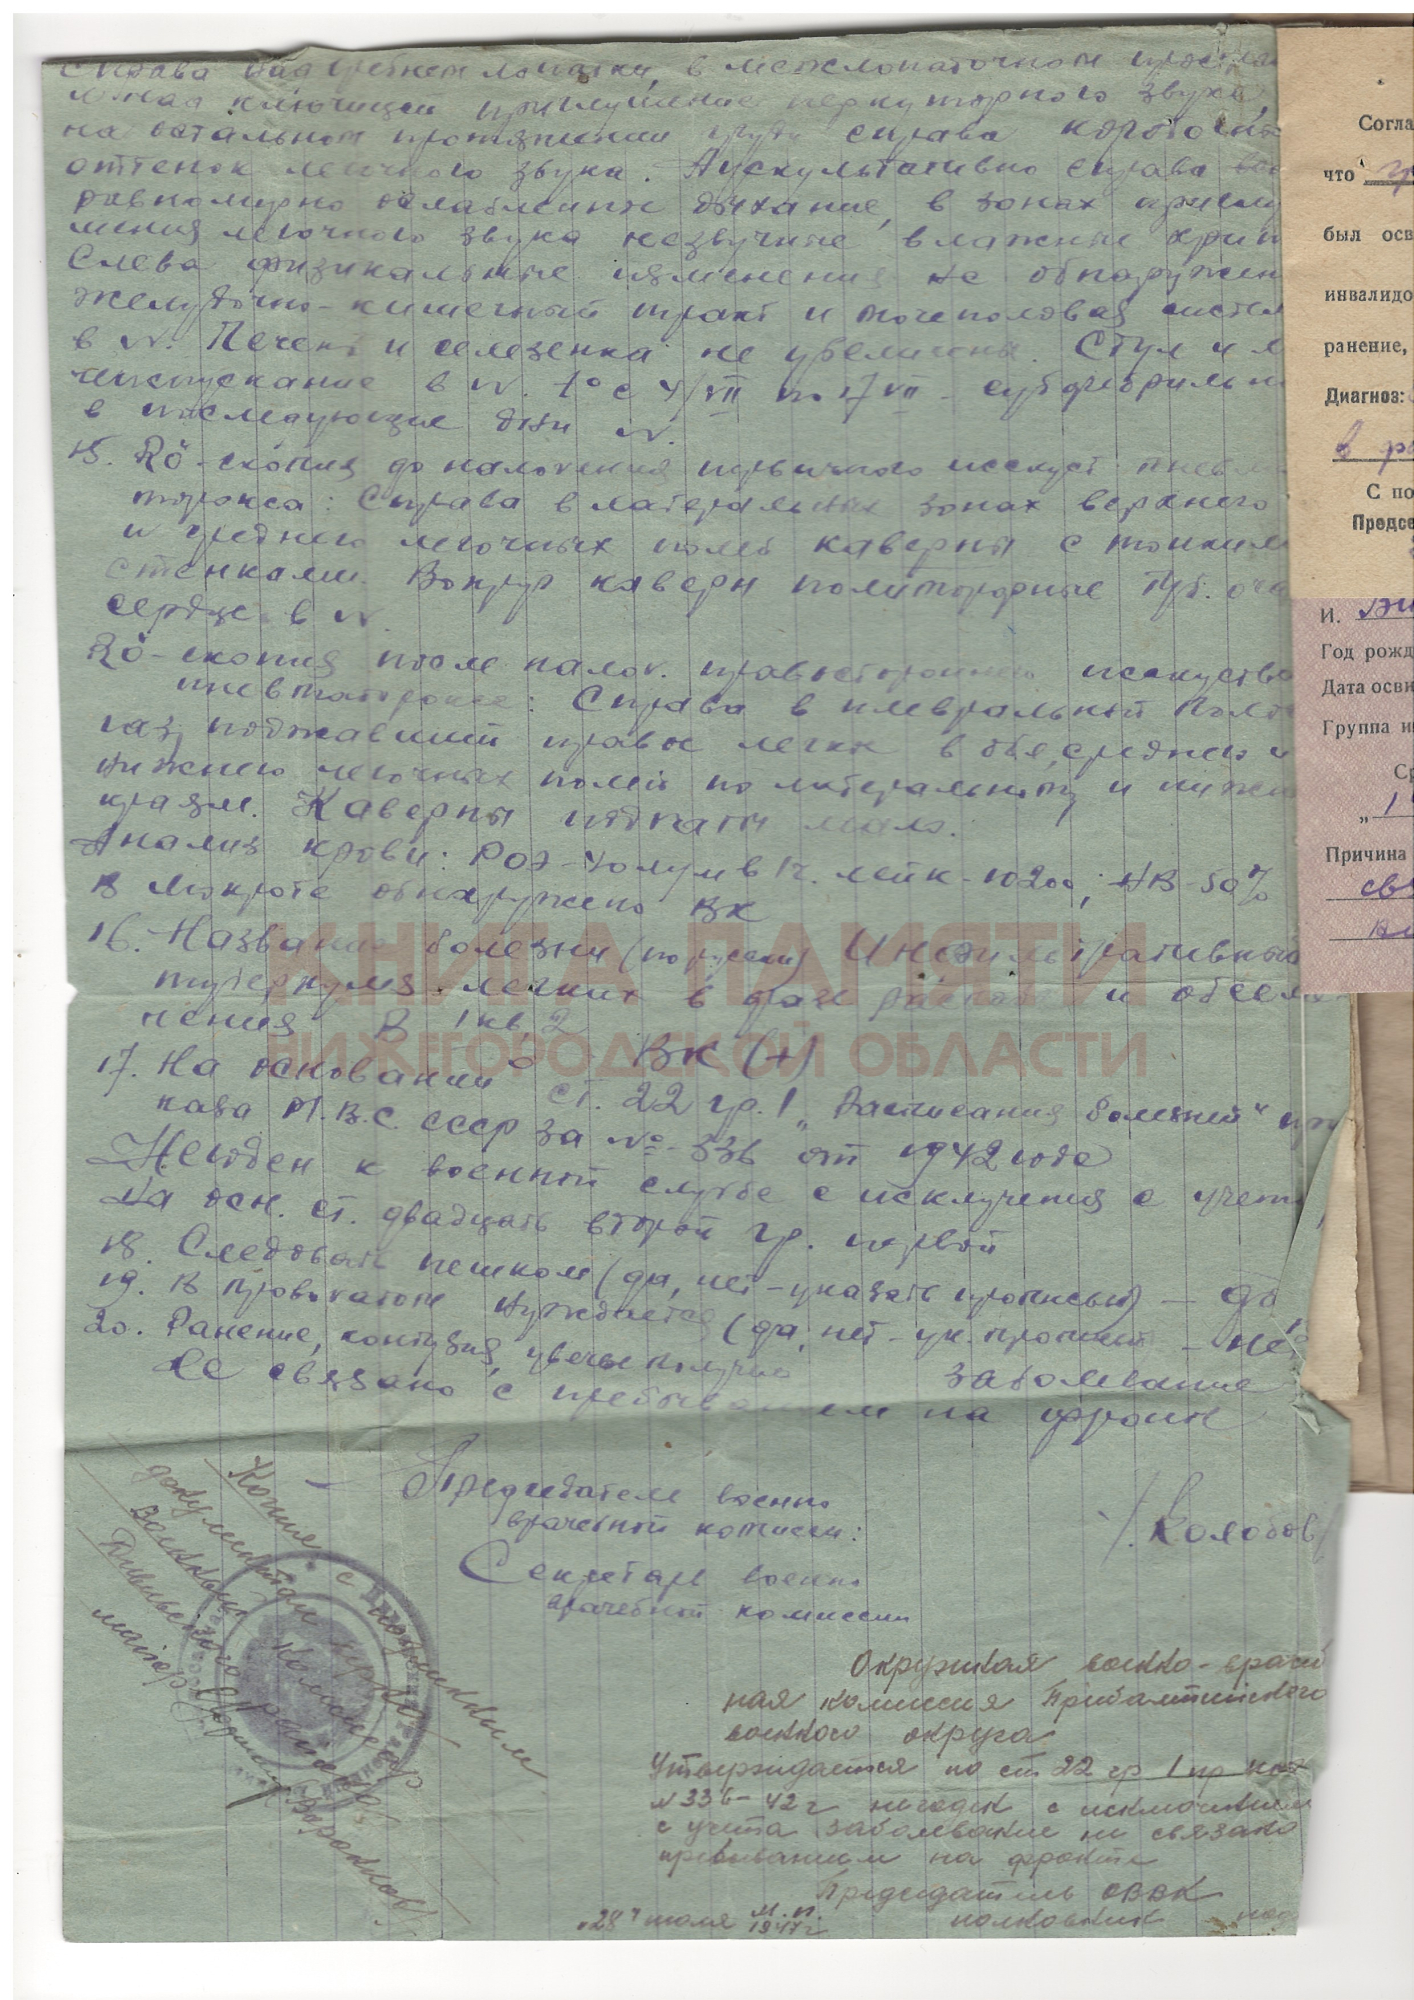 справа над гребнем лопатки, в межлопаточном прост
над ключицей приглушение перкуторного звука,
на остальном протяжении груди справа коробочн
оттенок легочного звука. Аускультативно справа
равномерно ослабленные дыхание, в зонах приглу
шения легочного звука незвучные влажные хрип
Слева физикальные изменения не обнаружен
Желудочно-кишечный тракт и мочеполовая систем
в N. Печень и селезенка не увеличены. Стул и м
чеиспускание в N. t° с 4/VII по 17/VII - субфебрильн
в последующие дни N.
15. Rö-скопия до наложения первичного исскуст пневмо
торокса: Справа в латеральных зонах верхнего
и среднего легочных полей каверны с тонким
стенками. Вокруг каверн полиморфные туб. оча
сердце в N.
Rö-скопия после налож. правостороннего исскуство
пневматоракса: Справа в плевральный Поло
газ, поджавший правое легкое в обл. среднего и
нижнего легочных полей по латеральному и нижн
краям. Каверны поджаты мало.
Анализ крови: РОЭ-40 мм в 1ч. лейк-10200, НВ-50%
В Мокроте обнаружено ВК
16. Название болезни (по русски) Инфильтративный
туберкулез легких в фазе распада и обсеме
нения В 1 кв 2 ВК (+)
17. На основании ст. 22 гр. 1 „Расписания болезней" при
каза М.В.С. СССР за № 336 от 1942 года
Негоден к военной службе с исключения с учета
На осн. ст. двадцать второй гр. первой
18. Следовать пешком (да, нет - указать прописью) — да
19. В провожатом нуждается (да, нет - ук. прописью) - нет
20. Ранение, контузия, увечье получено заболевание
Не связано с пребыванием на фронте
Председатель военно
врачебной комиссии: /Колобов/
Секретарь военно
врачебной комиссии
Копия с подлинным
документом верна
Военный комиссар
района
майор
Окружная военно-врачеб
ная комиссия Прибалтийского
военного округа
Утверждается по ст 22 гр 1 пр
N 336-42 г негоден с исключением
с учета заболевание не связано
пребыванием на фронте
Председатель ОВВК
М.П. полковник
„28" июля 1947 г
КНИГА ПАМЯТИ
НИЖЕГОРОДСКОЙ ОБЛАСТИ
Согла
что
был осв
инвалидо
ранение,
Диагноз:
в ра
С по
Предсе
И.
Год рожд
Дата осви
Группа ин
Ср
„1
Причина
свя